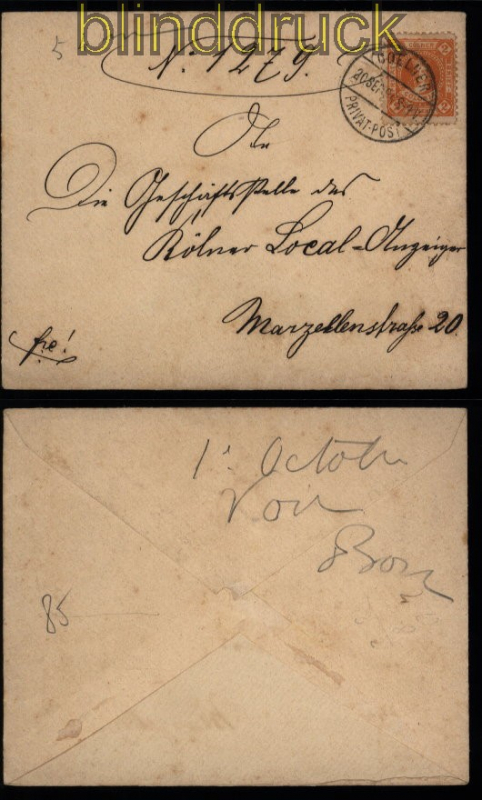 blinddruck
5
N: 1279.
COELNER
PRIVAT-POST
2
An
Die Geschäftsstelle des
Kölner Local-Anzeiger
Marzellenstraße 20.
fre!
1. October
85